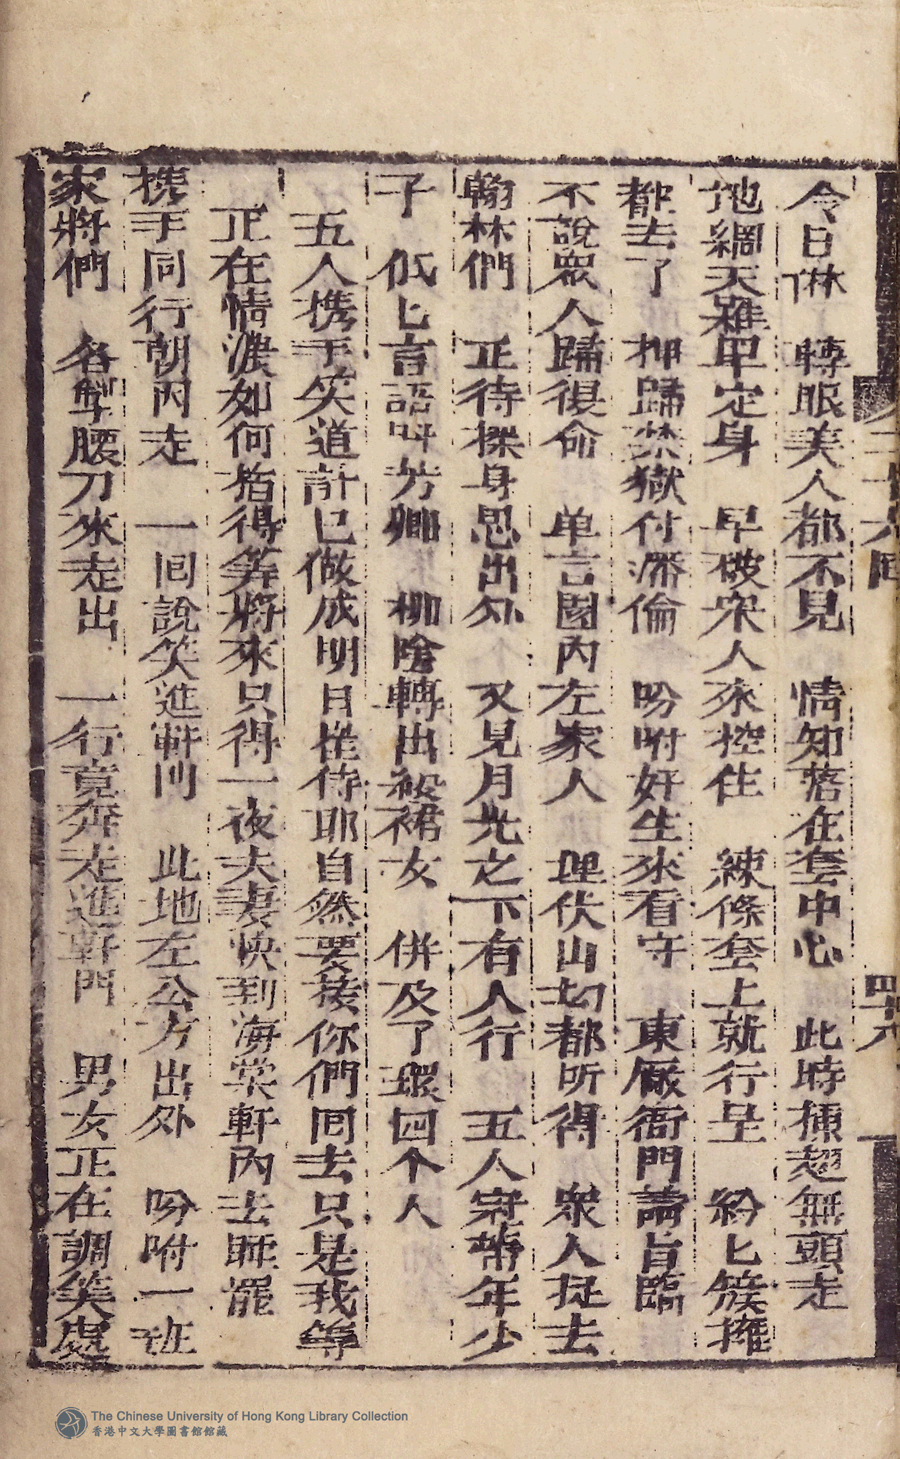 二十六回
四十八
今日啉 轉眼美人都不見 情知落在套中心 此時揷翅無頭走
地網天羅早定身 早被衆人來控住 練條套上就行呈 紛匕簇擁
都去了 押歸禁獄付潘倫 吩咐奸生來看守 東厰衙門請旨臨
不說衆人歸復命 单言園內左家人 埋伏山幼都所得 衆人捉去
翰林們 正待探身思出外 又見月光之下有人行 五人冠帶年少
子 低匕言語呌芳卿 柳陰轉出殺裙女 併及了環四个人
五人携手笑道計已做成明日推侍耶自然要接你們囘去只是我等
正在情濃如何捨得等將來只得一夜夫妻快到海棠軒內去睡罷
携手同行朝內走 一囘說笑進軒門 此地左公方出外 吩咐一班
家將們 各掣腰刀來走出 一行竟奔走進軒門 男女正在調笑處
The Chinese University of Hong Kong Library Collection
香港中文大學圖書館館藏